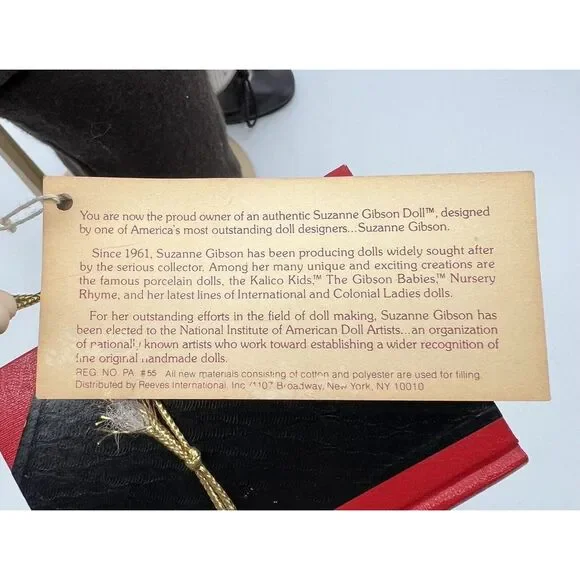 You are now the proud owner of an authentic Suzanne Gibson Doll™, designed
by one of America's most outstanding doll designers...Suzanne Gibson.
Since 1961, Suzanne Gibson has been producing dolls widely sought after
by the serious collector. Among her many unique and exciting creations are
the famous porcelain dolls, the Kalico Kids,™ The Gibson Babies,™ Nursery
Rhyme, and her latest lines of International and Colonial Ladies dolls.
For her outstanding efforts in the field of doll making, Suzanne Gibson has
been elected to the National Institute of American Doll Artists...an organization
of nationally known artists who work toward establishing a wider recognition of
fine original handmade dolls.
REG. NO. PA. #55 All new materials consisting of cotton and polyester are used for filling.
Distributed by Reeves International, Inc. 1107 Broadway, New York, NY 10010